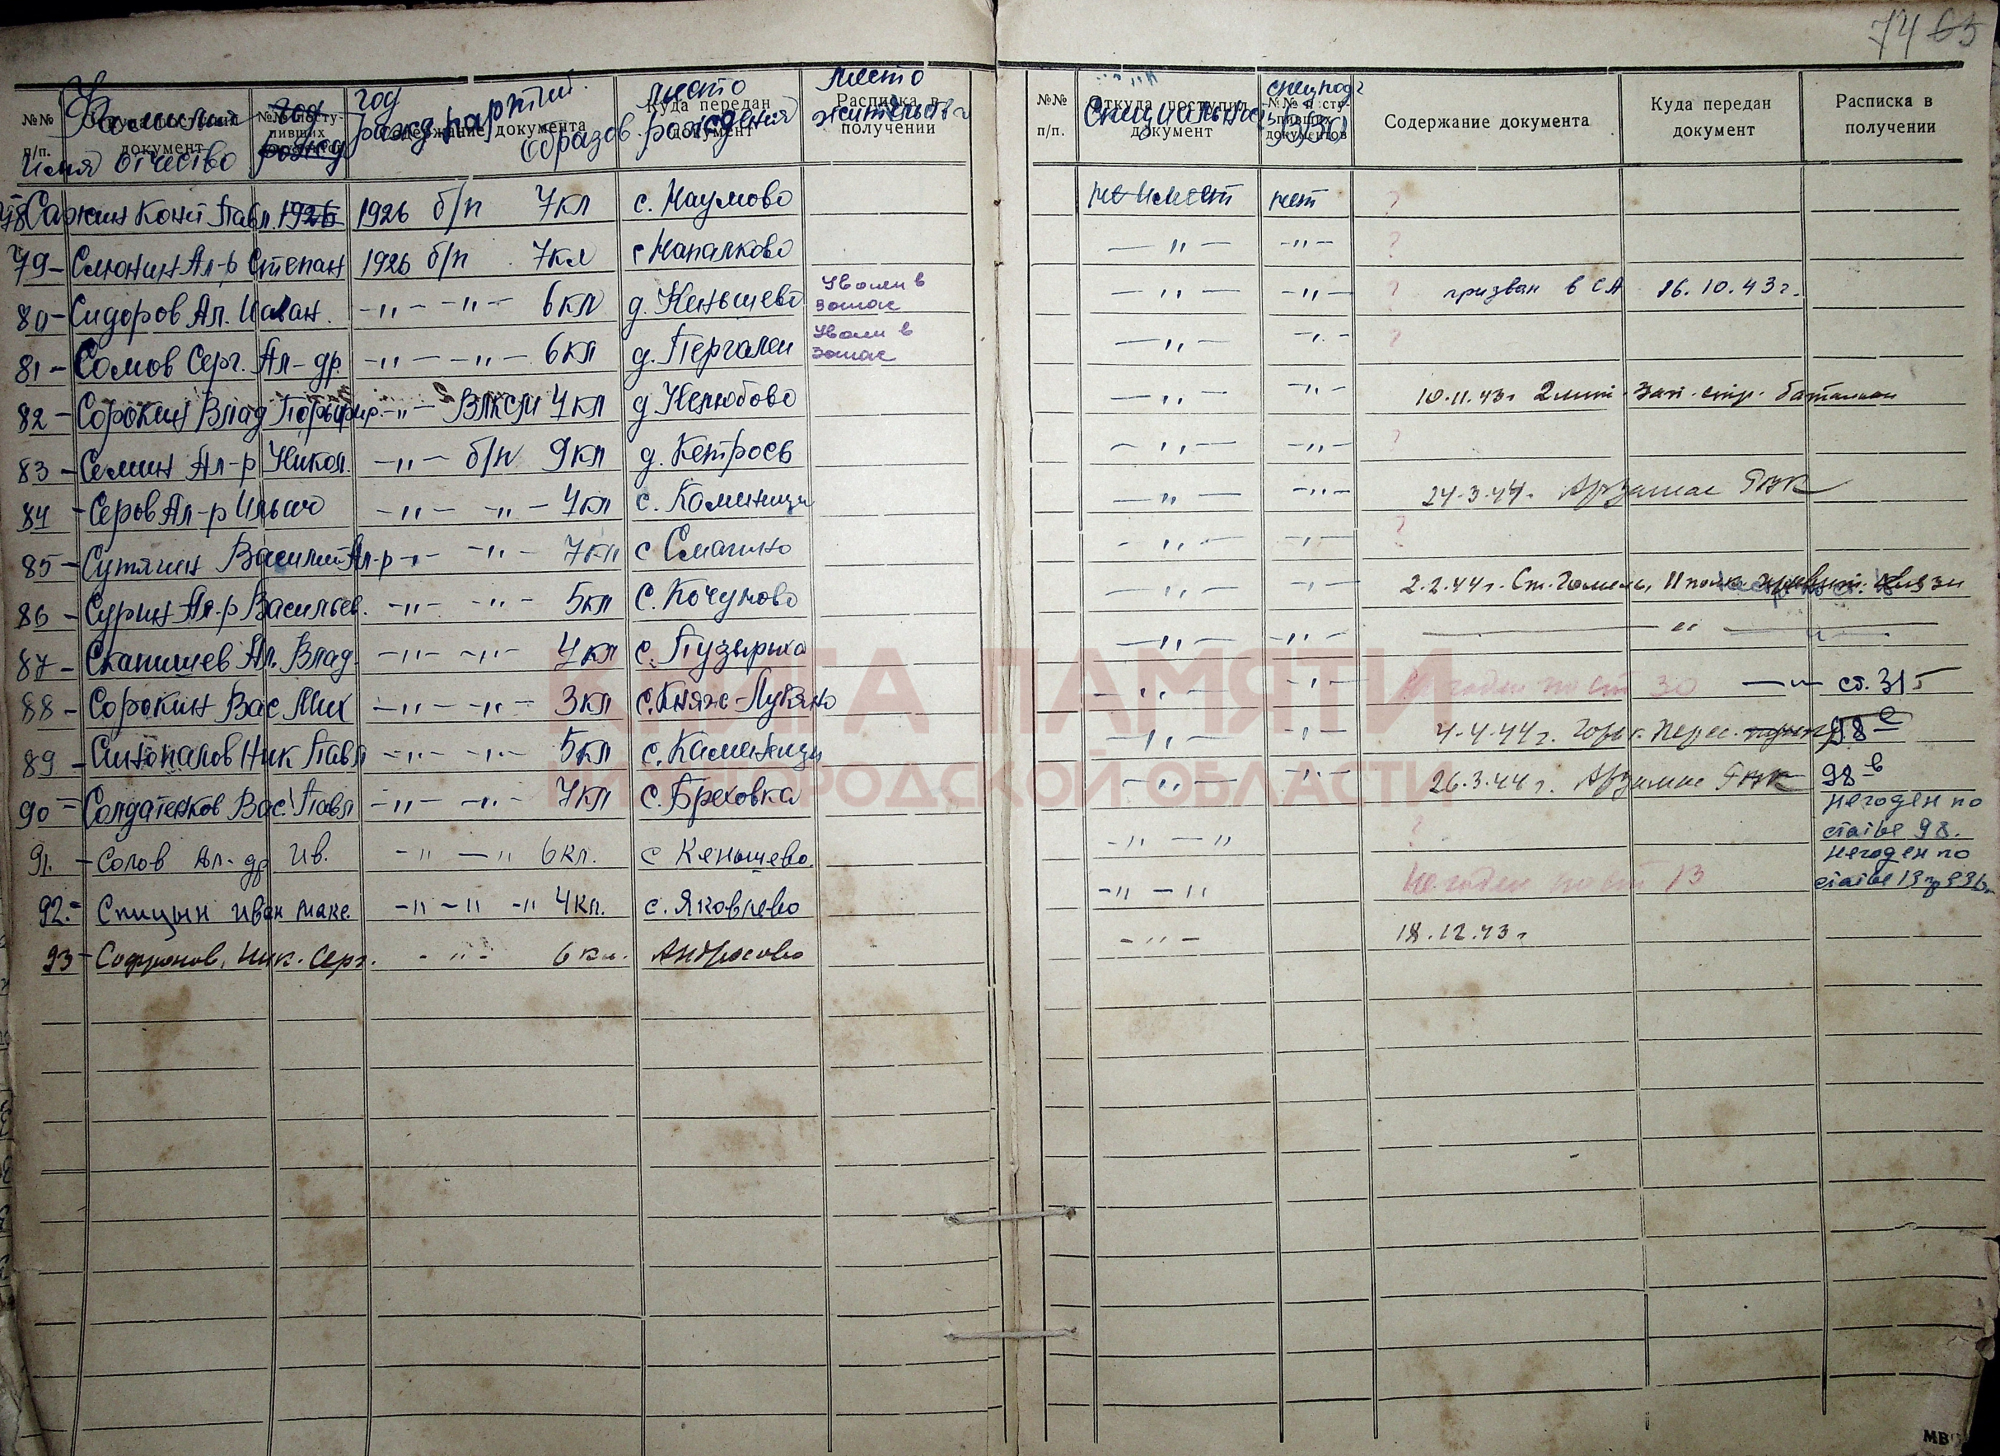 74 65
Фамилия имя отчество
год рожд
год рожд партий. образов
место рождения
место жительства
№№ п/п.
Содержание документа
Куда передан документ
Расписка в получении
№№ п/п.
Откуда поступил документ
Содержание документа
Куда передан документ
Расписка в получении
78 Саркин Конст Павл. 1926 1926 б/п 7кл с. Наумово не имеет нет ?
79 - Слюнин Ал-р Степан 1926 б/п 7кл с Напалково — " — -"- ?
80 - Сидоров Ал. -"- -"- 6кл д. Кеньшево Уволен в запас — " — -"- ? призван в СА 16.10.43г.
81 - Сомов Серг. Ал-др. -"- -"- 6кл д. Пергалеи Уволен в запас — " — -"- ?
82 - Сорокин Влад Порфир. -"- ВЛКСМ 4кл д Нелюбово — " — -"- 10.11.43г Зап. стр. батальон
83 - Семин Ал-р Никол. -"- б/п 9кл д. Кетрось — " — -"- ?
84 - Серов Ал-р Ильич -"- -"- 4кл с. Каменищи — " — -"- 24.3.44г. Арзамас РВК
85 - Сутягин Василий Ал-р -"- -"- 7кл с Смагино — " — -"- ?
86 - Сурин Ал-р Васильев. -"- -"- 5кл с. Кочуново — " — -"- 2.2.44г. Ст. Гомель, 11 полк связи
87 - Скапишев Ал. Влад. -"- -"- 4кл с. Пузыриха — " — -"- — " —
88 - Сорокин Вас Мих -"- -"- 3кл с. Княж-Пукино — " — -"- Не годен по ст 30 — " — ст. 31
89 - Синопалов Ник Павл -"- -"- 5кл с. Каменищи — " — -"- 4.4.44г. Горьк. перес. 98
90 - Солдатенков Вас. Павл -"- -"- 7кл с. Бреховка — " — -"- 26.3.44г. Арзамас РВК 98-в
91. - Солов Ал-др Ив. -"- — " 6кл. с Кеньшево. -"- — " ? негоден по статье 98.
92. - Спицын Иван Макс. -"- -"- 4кл. с. Яковлево -"- — " Негоден по ст 13 негоден по статье 13
93 - Софронов, Ник. Серг. -"- 6кл. Андросово -"- 18.12.43г
КНИГА ПАМЯТИ
НИЖЕГОРОДСКОЙ ОБЛАСТИ